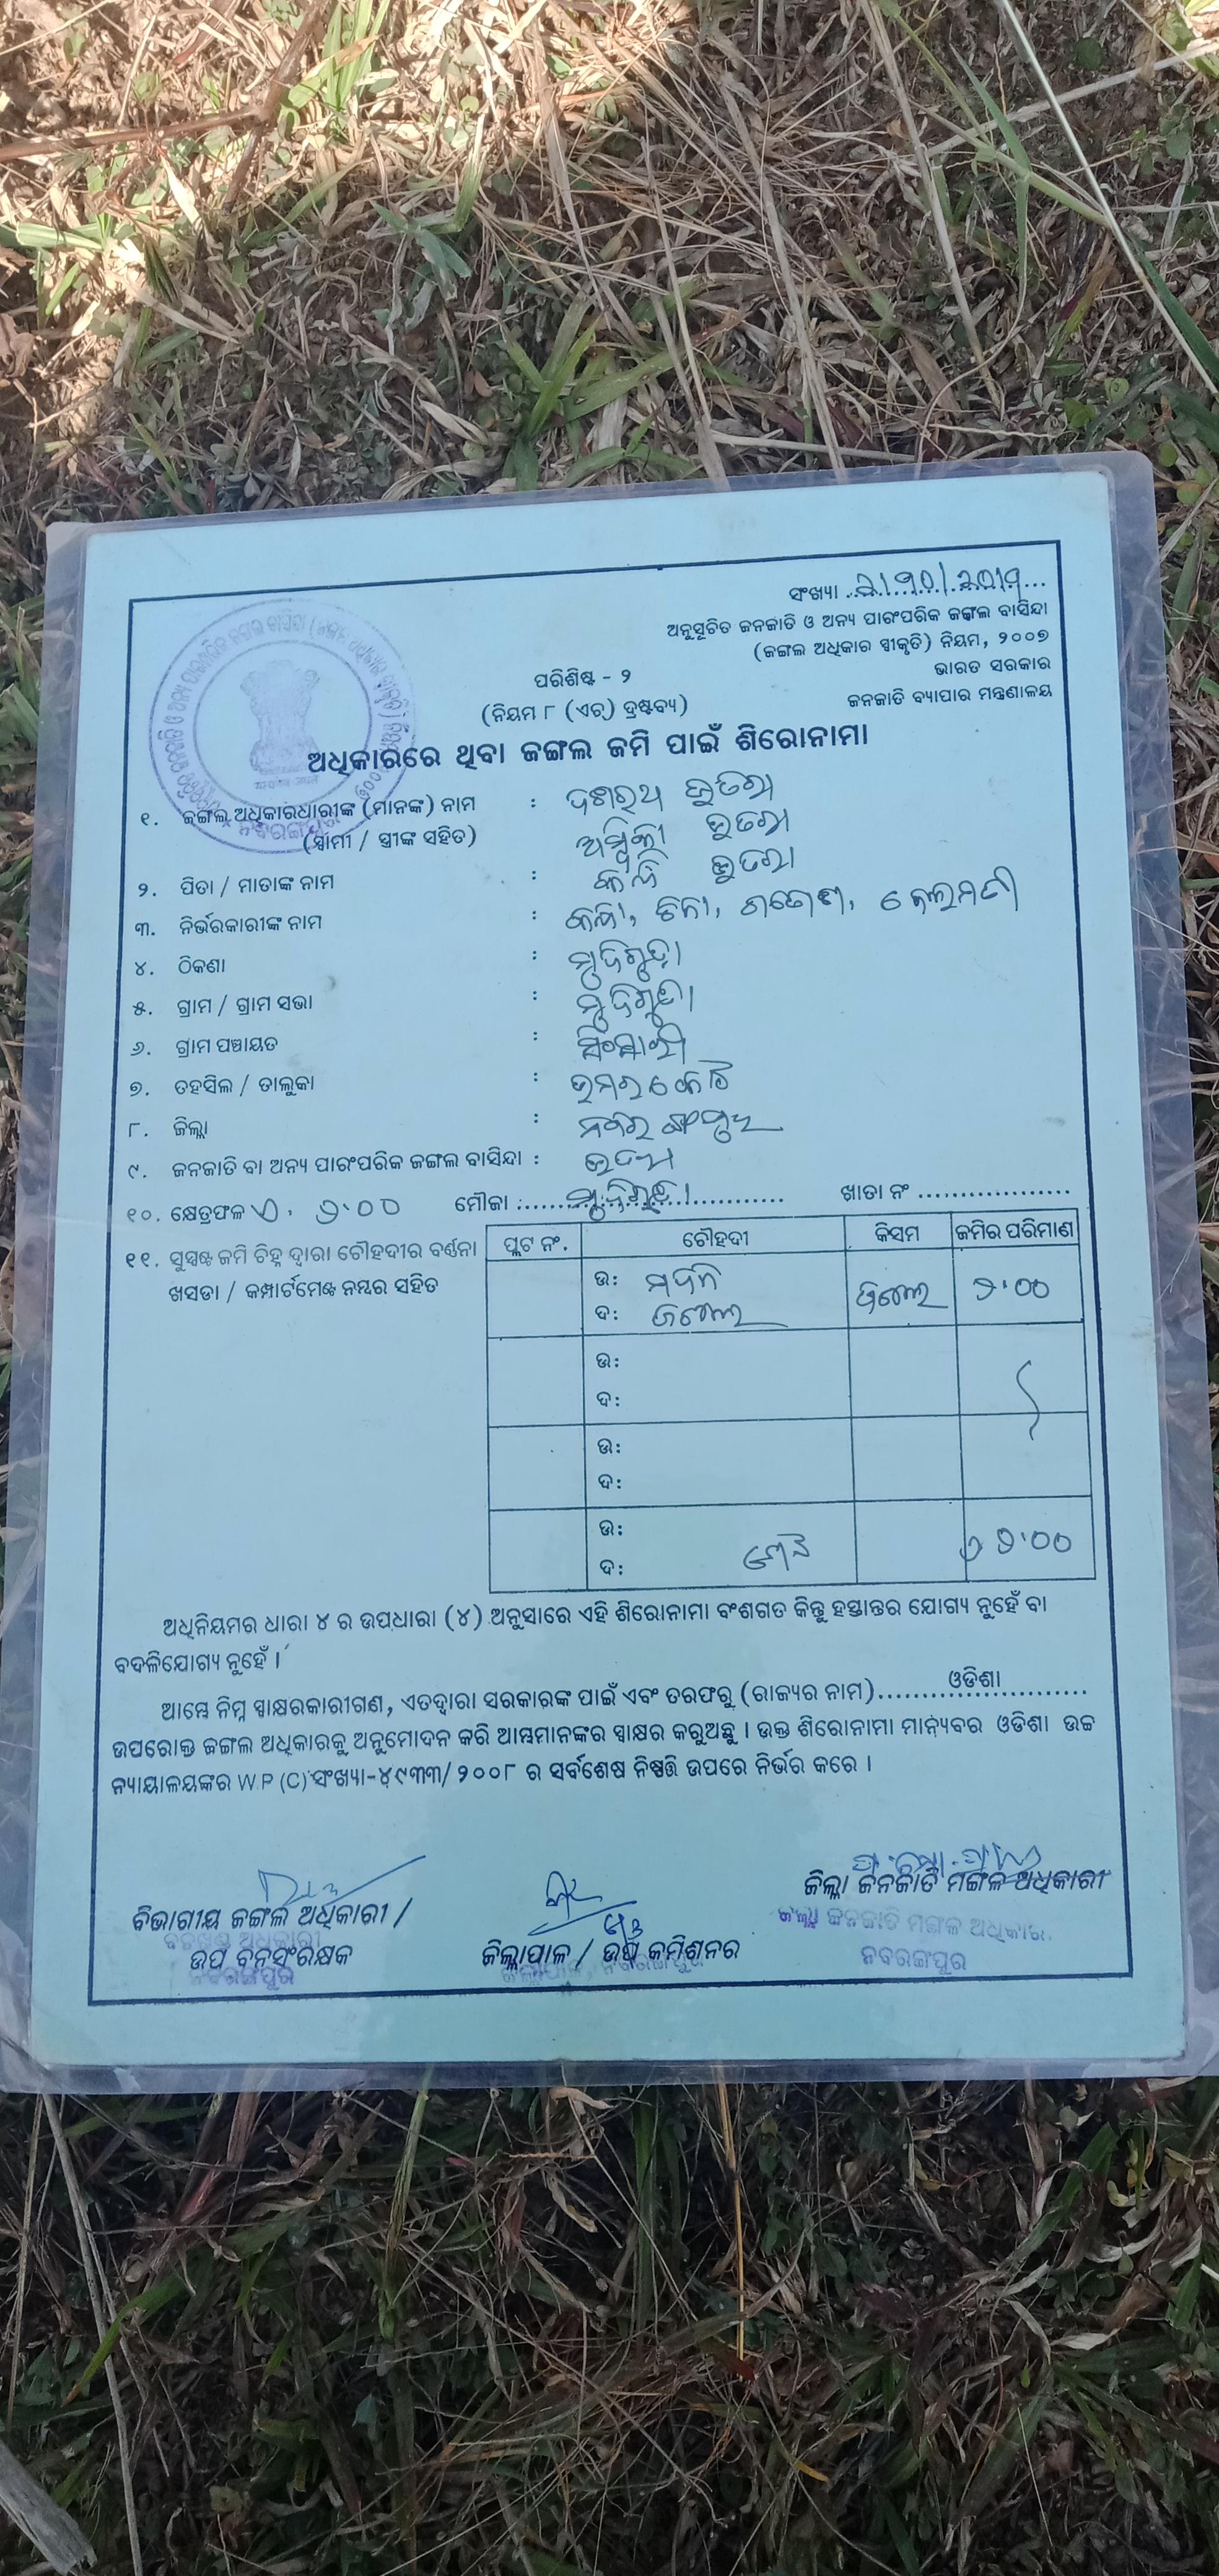 ସଂଖ୍ୟା
ଅନୁସୂଚିତ ଜନଜାତି ଓ ଅନ୍ୟ ପାରଂପରିକ ଜଙ୍ଗଲ ବାସିନ୍ଦା
(ଜଙ୍ଗଲ ଅଧିକାର ସ୍ୱୀକୃତି) ନିୟମ, ୨୦୦୭
ଭାରତ ସରକାର
ଜନଜାତି ବ୍ୟାପାର ମନ୍ତ୍ରଣାଳୟ
ପରିଶିଷ୍ଟ - ୨
(ନିୟମ ୮ (ଏଚ୍) ଦ୍ରଷ୍ଟବ୍ୟ)
ଅଧିକାରରେ ଥିବା ଜଙ୍ଗଲ ଜମି ପାଇଁ ଶିରୋନାମା
୧. ଜଙ୍ଗଲ ଅଧିକାରଧାରୀଙ୍କ (ମାନଙ୍କ) ନାମ : ଦଶରଥ ଭତରା
(ସ୍ୱାମୀ / ସ୍ତ୍ରୀଙ୍କ ସହିତ) ଭତରା
୨. ପିତା / ମାତାଙ୍କ ନାମ : ଭତରା
୩. ନିର୍ଭରକାରୀଙ୍କ ନାମ :
୪. ଠିକଣା : ମୁଦିଗୁଡ଼ା
୫. ଗ୍ରାମ / ଗ୍ରାମ ସଭା : ମୁଦିଗୁଡ଼ା
୬. ଗ୍ରାମ ପଞ୍ଚାୟତ :
୭. ତହସିଲ / ତାଲୁକା : ଉମରକୋଟ
୮. ଜିଲ୍ଲା : ନବରଙ୍ଗପୁର
୯. ଜନଜାତି ବା ଅନ୍ୟ ପାରଂପରିକ ଜଙ୍ଗଲ ବାସିନ୍ଦା :
୧୦. କ୍ଷେତ୍ରଫଳ ଏ. ୨.୦୦ ମୌଜା : ମୁଦିଗୁଡ଼ା ଖାତା ନଂ
୧୧. ସୁସ୍ପଷ୍ଟ ଜମି ଚିହ୍ନ ଦ୍ୱାରା ଚୌହଦୀର ବର୍ଣ୍ଣନା
ଖସଡା / କମ୍ପାର୍ଟମେଣ୍ଟ ନମ୍ବର ସହିତ
ପ୍ଲଟ ନଂ. ଚୌହଦୀ କିସମ ଜମିର ପରିମାଣ
ଉ:
ଦ: ଜଙ୍ଗଲ ଜଙ୍ଗଲ ୨.୦୦
ଉ:
ଦ:
ଉ:
ଦ:
ଉ:
ଦ: ମୋଟ ଏ ୨.୦୦
ଅଧିନିୟମର ଧାରା ୪ ର ଉପଧାରା (୪) ଅନୁସାରେ ଏହି ଶିରୋନାମା ବଂଶଗତ କିନ୍ତୁ ହସ୍ତାନ୍ତର ଯୋଗ୍ୟ ନୁହେଁ ବା
ବଦଳିଯୋଗ୍ୟ ନୁହେଁ ।
ଆମ୍ଭେ ନିମ୍ନ ସ୍ୱାକ୍ଷରକାରୀଗଣ, ଏତଦ୍ୱାରା ସରକାରଙ୍କ ପାଇଁ ଏବଂ ତରଫରୁ (ରାଜ୍ୟର ନାମ) ଓଡିଶା
ଉପରୋକ୍ତ ଜଙ୍ଗଲ ଅଧିକାରକୁ ଅନୁମୋଦନ କରି ଆମ୍ଭମାନଙ୍କର ସ୍ୱାକ୍ଷର କରୁଅଛୁ । ଉକ୍ତ ଶିରୋନାମା ମାନ୍ୟବର ଓଡିଶା ଉଚ୍ଚ
ନ୍ୟାୟାଳୟଙ୍କର W.P (C) ସଂଖ୍ୟା-୪୯୩୩/୨୦୦୮ ର ସର୍ବଶେଷ ନିଷ୍ପତ୍ତି ଉପରେ ନିର୍ଭର କରେ ।
ବିଭାଗୀୟ ଜଙ୍ଗଲ ଅଧିକାରୀ /
ଉପ ବନସଂରକ୍ଷକ
ନବରଙ୍ଗପୁର
ଜିଲ୍ଲାପାଳ / ଉପ କମିଶନର
ଜିଲ୍ଲାପାଳ, ନବରଙ୍ଗପୁର
ଜିଲ୍ଲା ଜନଜାତି ମଙ୍ଗଳ ଅଧିକାରୀ
ଜିଲ୍ଲା ଜନଜାତି ମଙ୍ଗଳ ଅଧିକାରୀ
ନବରଙ୍ଗପୁର